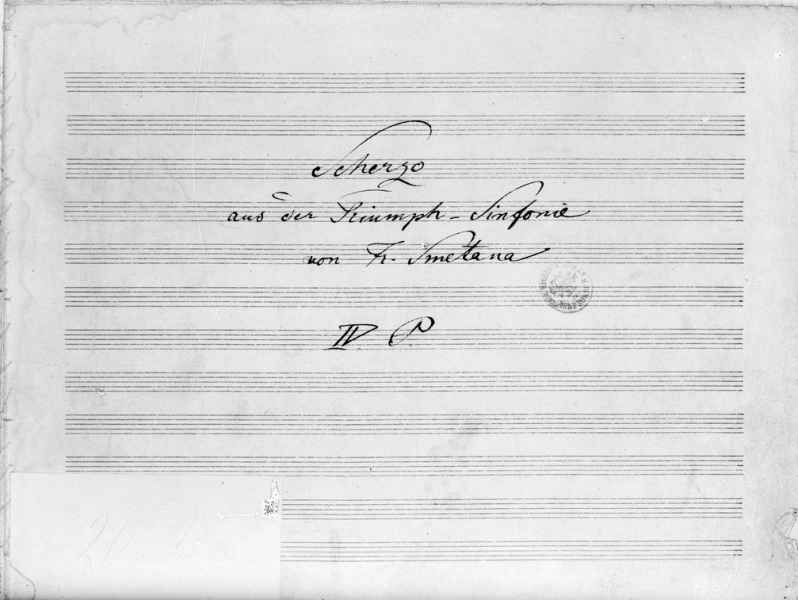 Scherzo
aus der Triumph-Sinfonie
von Fr. Smetana
IV. P.